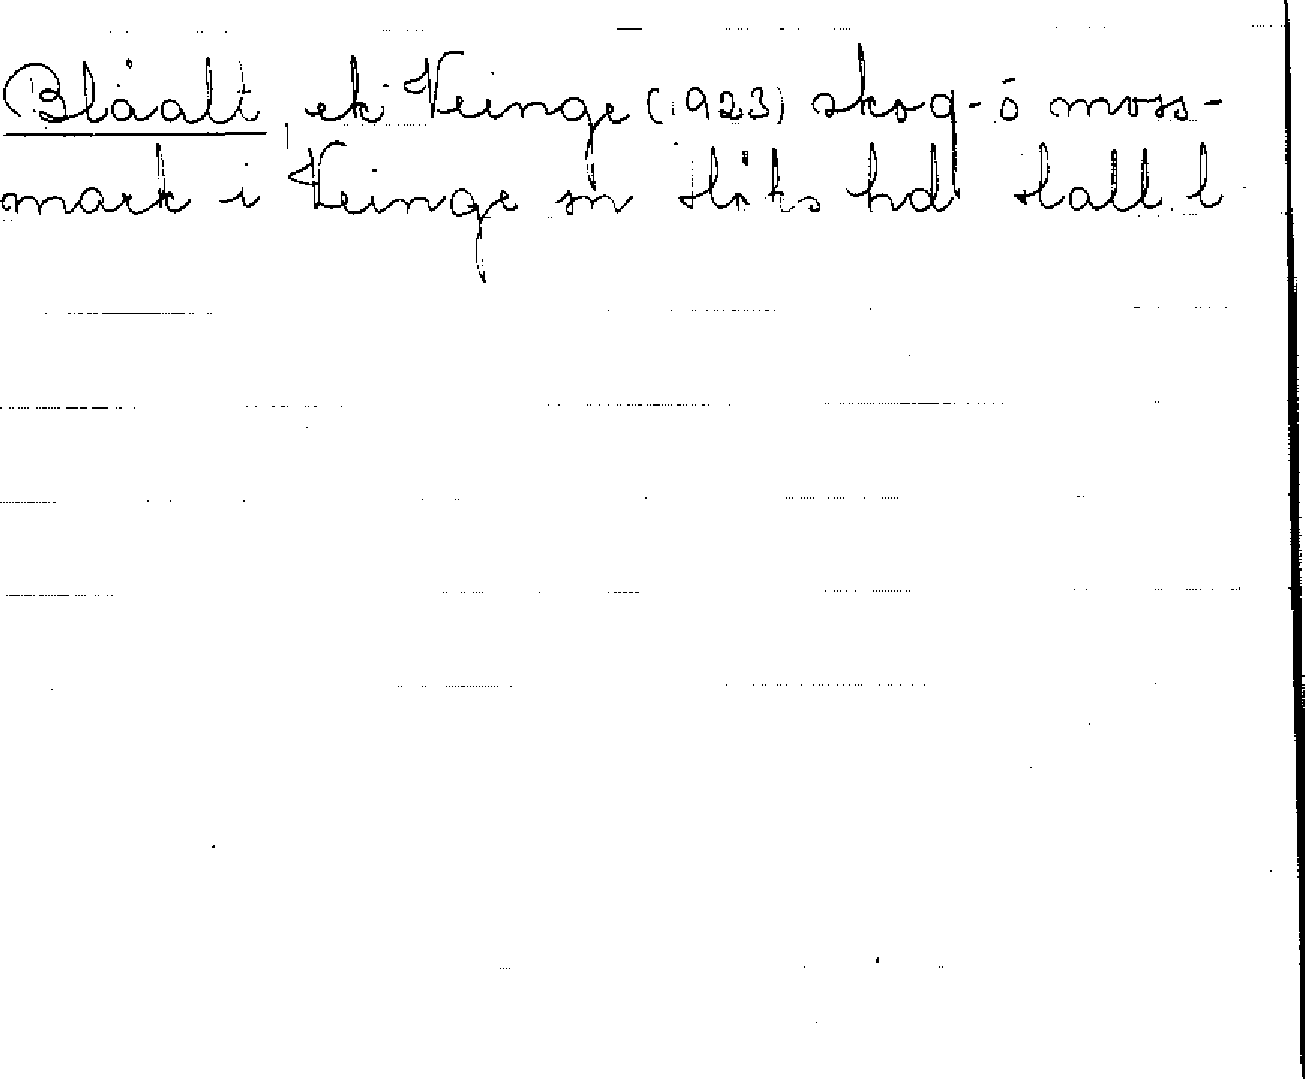 Blåalt, ek Veinge (1923) skog- o moss-
mark i Veinge sn Höks hd Hall. l